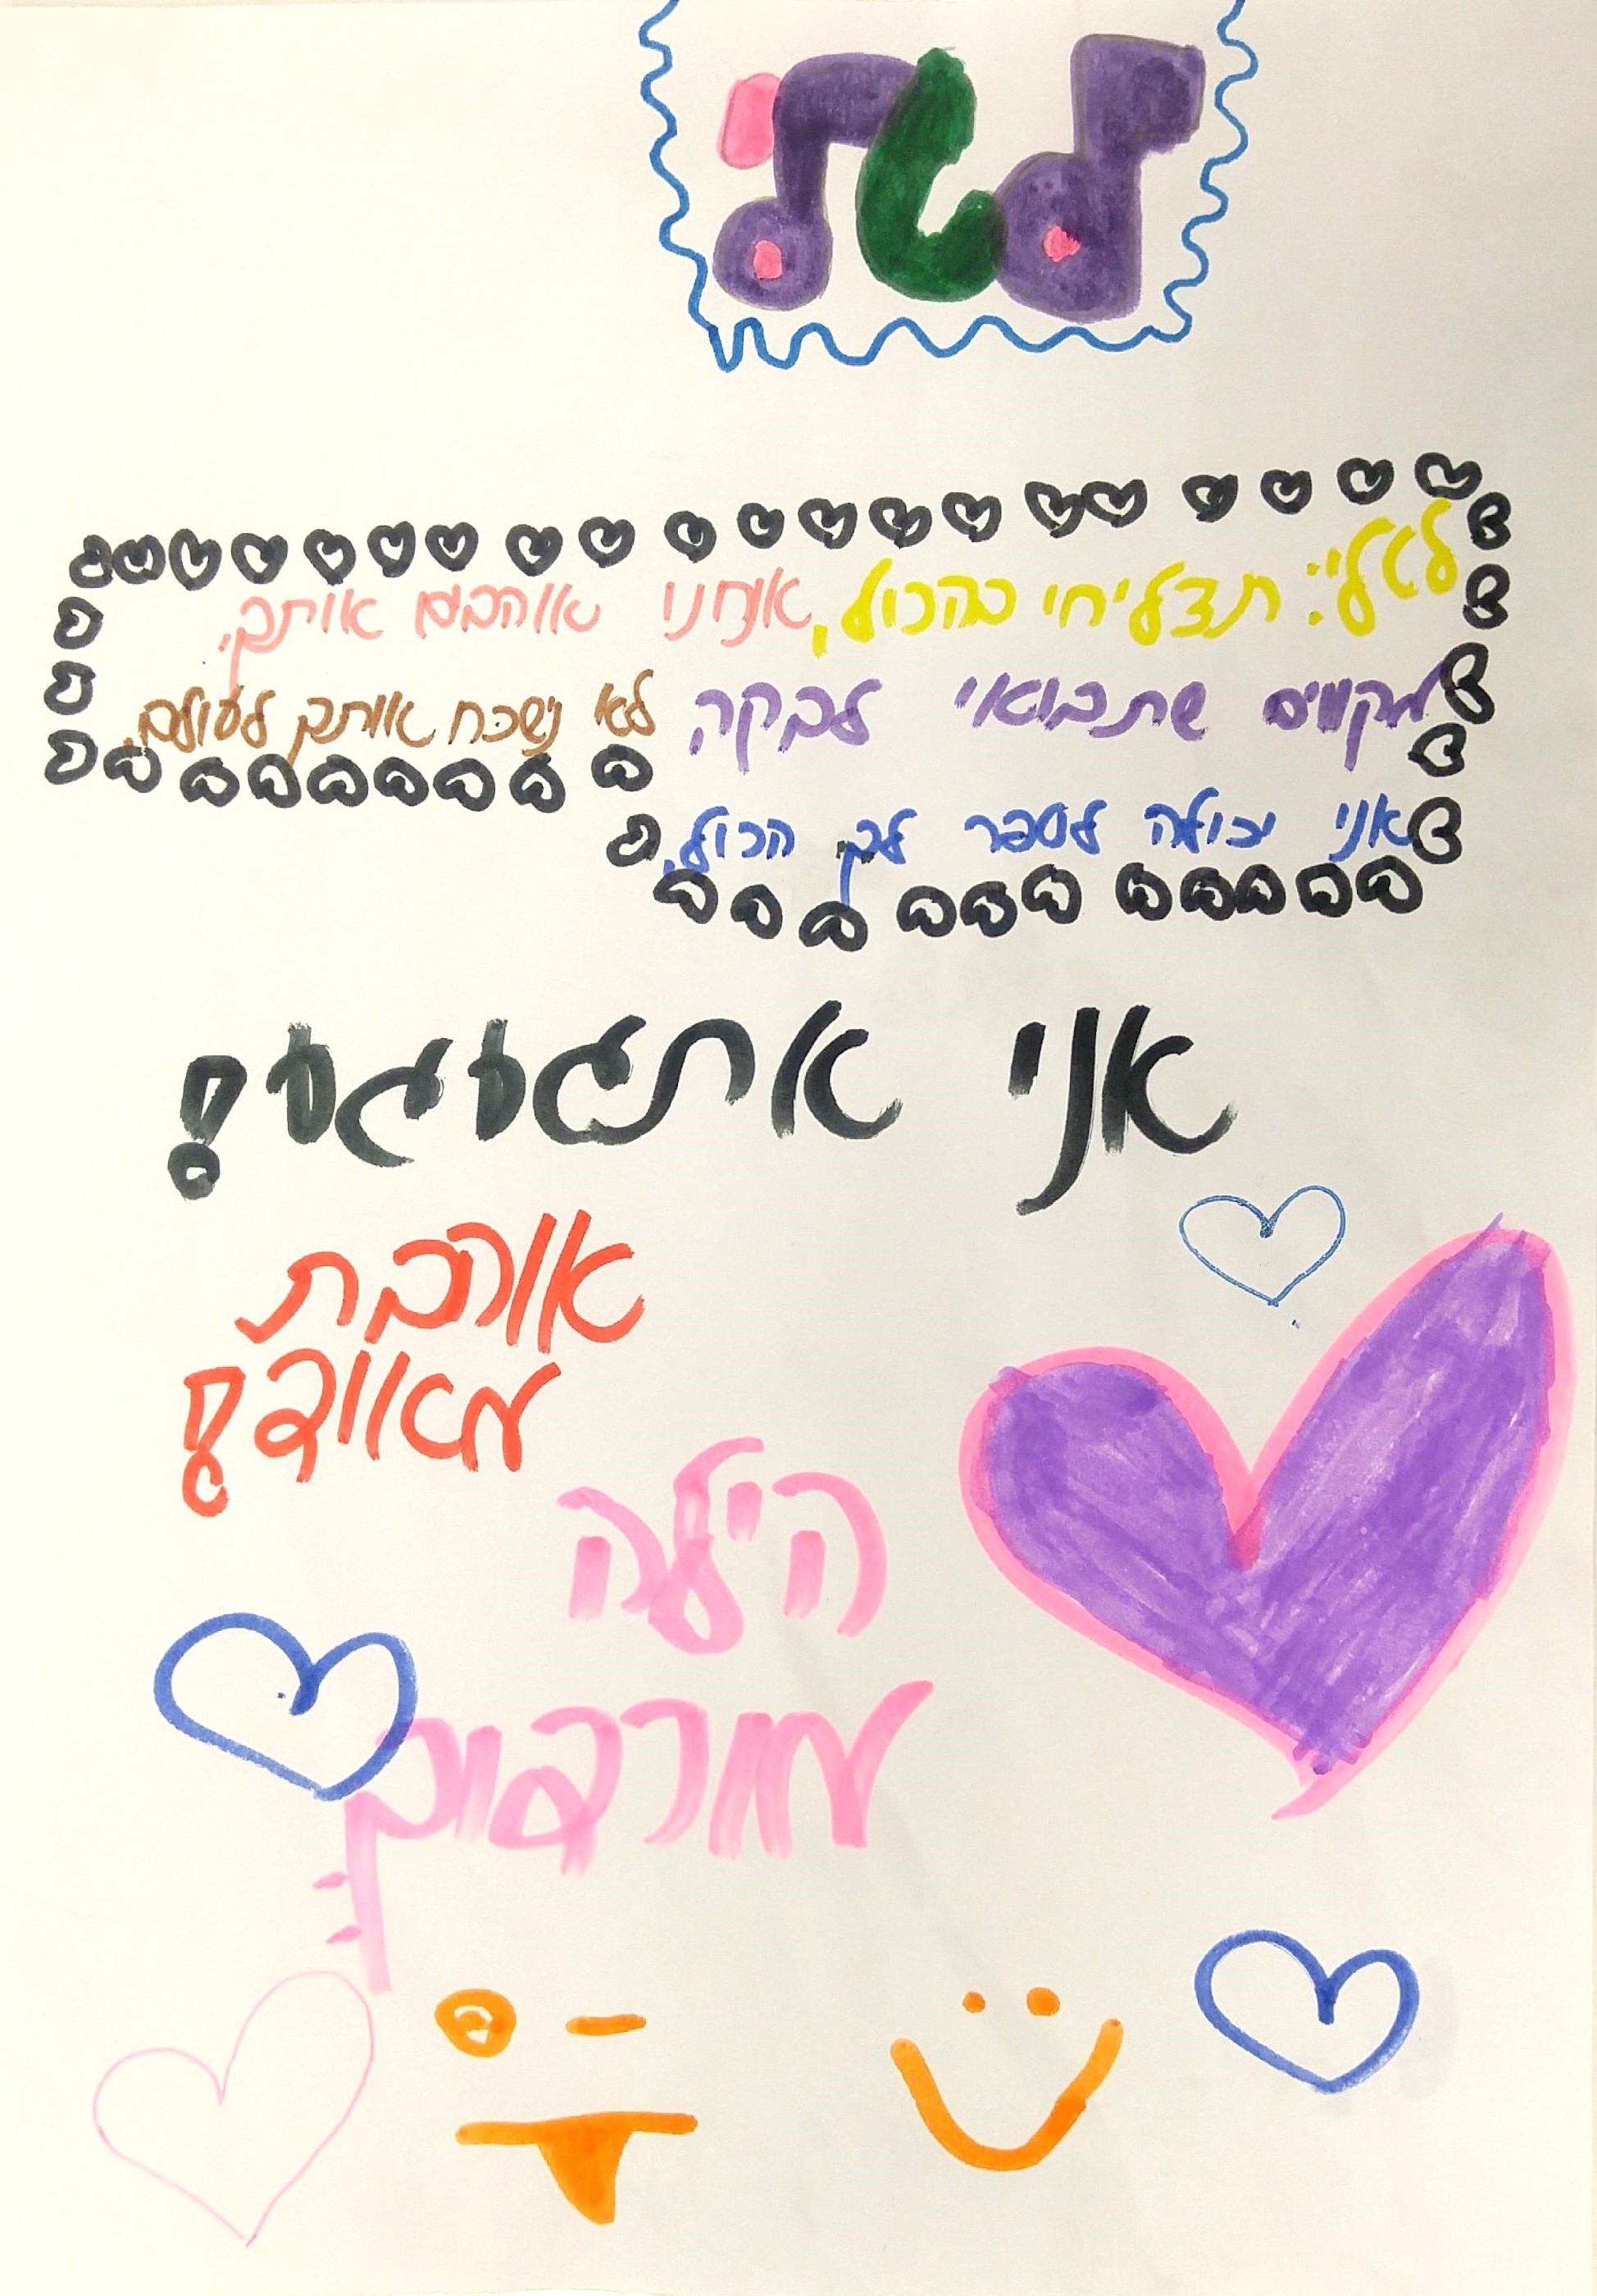 לאלי: תצליחי בהכול, אנחנו אוהבים אותך,
מקווים שתבואי לבקר, לא נשכח אותך לעולם.
אני יכולה לספר לך הכול,
אני אתגעגע!
אוהבת
מאווד!
הילה
מורדוך